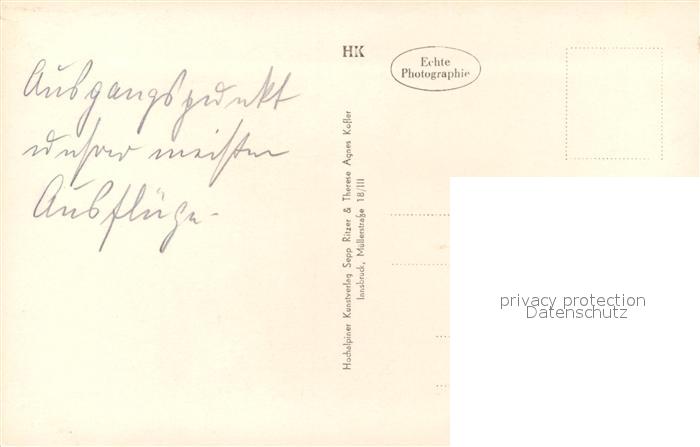 Ausgangspunkt
unserer meisten
Ausflüge.
HK
Echte
Photographie
Hochalpiner Kunstverlag Sepp Ritzer & Therese Agnes Kofler
Innsbruck, Müllerstraße 18/III
privacy protection
Datenschutz